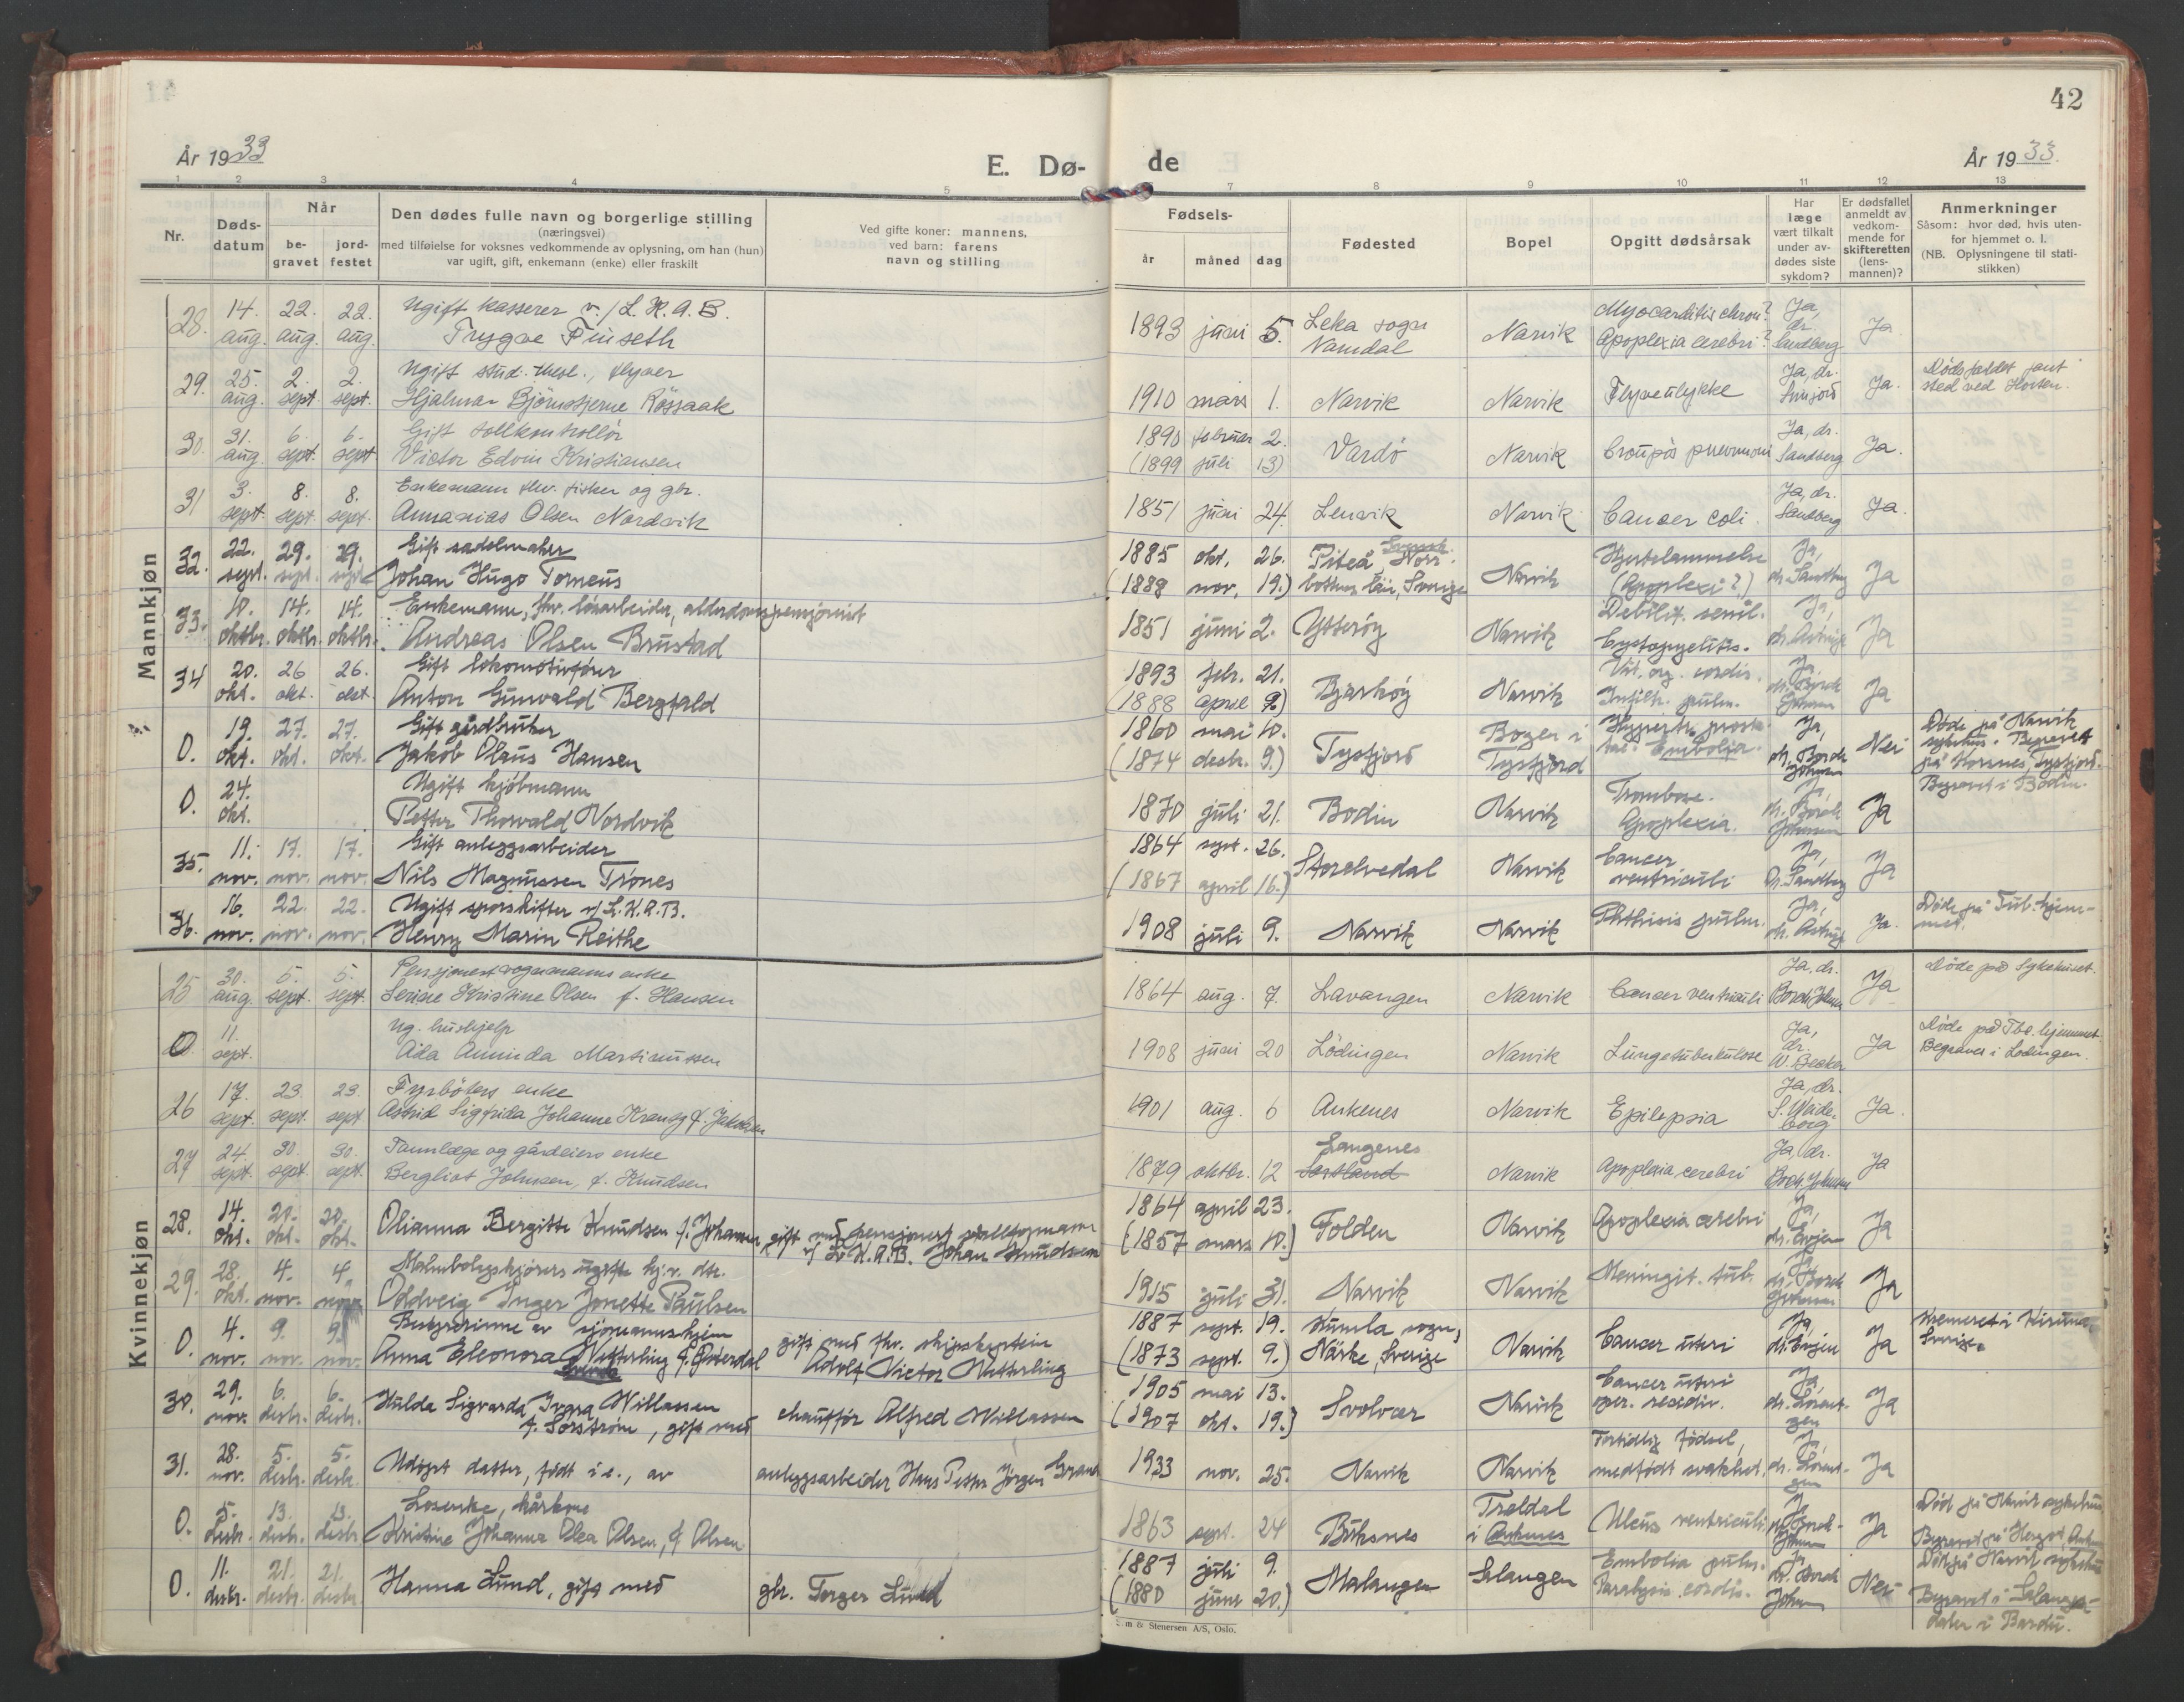 42
År 1933
E. Dø-
de
År 1933.
1 2 3 4 5
7 8 9 10 11 12 13
Nr.
Døds-
datum
Når
be-
gravet
jord-
festet
Den dødes fulle navn og borgerlige stilling
(næringsvei)
med tilføielse for voksnes vedkommende av oplysning, om han (hun)
var ugift, gift, enkemann (enke) eller fraskilt
Ved gifte koner: mannens,
ved barn: farens
navn og stilling
Fødsels-
år måned dag
Fødested
Bopel
Opgitt dødsårsak
Har
læge
vært tilkalt
under av-
dødes siste
sykdom?
Er dødsfallet
anmeldt av
vedkom-
mende for
skifteretten
(lens-
mannen)?
Anmerkninger
Såsom: hvor død, hvis uten-
for hjemmet o. l.
(NB. Oplysningene til stati-
stikken)
Mannkjøn
28. 14. aug. 22. aug. 22. aug. Ugift kasserer v./L.K.A.B.
Trygve Finseth
1893 juni 5. Leka sogn Namdal Narvik Myocarditis chron? Apoplexia cerebri? Ja, dr. Sandberg Ja
29. 25. aug. 2. sept. 2. sept. Ugift stud. theol., flyver
Hjalmar Björnstjerne Rössaak
1910 mars 1. Narvik Narvik Flyveulykke Ja, dr. Ja. Dødsfaldet fant sted ved Horten.
30. 31. aug. 6. sept. 6. sept. Gift tollkontrollör
Victor Edvin Kristiansen
1890 februar 2. (1899 juli 13) Vardö Narvik Croupös pneumoni Ja, dr. Sandberg Ja.
31 3. sept. 8. sept. 8. sept. Enkemann fhv. fisker og gbr.
Annanias Olsen Nordvik
1851 juni 24. Lenvik Narvik Cancer coli. Ja, dr. Sandberg Ja.
32. 22. sept. 29. sept. 29. sept. Gift sadelmaker
Johan Hugo Torneus
1885 okt. 26. (1888 nov. 19.) Piteå, Norr- bottens län, Sverige Svensk. Narvik Hjertelammelse (Apoplexi?) Ja, dr. Sandberg Ja
33. 10. oktbr. 14. oktbr. 14. oktbr. Enkemann, fhv. løsarbeider, alderdomspensjonist
Andreas Olsen Brustad
1851 juni 2. Ytterøy Narvik Debilit. senil. Cystopyelitis. Ja, dr. Astrup Ja
34 20. okt. 26 okt. 26. okt. Gift lokomotivfører
Anton Gunvald Bergfald
1893 febr. 21. (1888 april 9.) Bjarkøy Narvik Vit. org. cordis. Infiltr. pulm. Ja, dr. Borch Johnsen Ja
0. 19. okt. 27. okt. 27. okt. Gift gårdbruker
Jakob Olaus Hansen
1860 mai 10. (1874 desbr. 9.) Tysfjord Bogen i Tysfjord Hypertr. prosta- tae. Embolia. Ja, dr. Borch Johnsen Nei Døde på Narvik sykehus. Begravet på Korsnes, Tysfjord.
0. 24. okt. Ugift kjøbmann
Petter Thorvald Nordvik
1870 juli 21. Bodin Narvik Trombose. Apoplexia. Ja, dr. Borch Johnsen Ja Begravet i Bodin.
35. 11. nov. 17. nov. 17. nov. Gift anleggsarbeider
Nils Magnussen Trones
1864 sept. 26. (1867 april 16.) Storelvedal Narvik Cancer ventriculi Ja, Dr. Sandberg Ja
36. 16. nov. 22. nov. 22. nov. Ugift sporskifter v/ L.K.A.B.
Henry Marin Reithe
1908 juli 9. Narvik Narvik Phthisis pulm. Ja, dr. Astrup Ja. Døde på Tub. hjem- met.
Kvinnekjøn
25 30. aug. 5. sept. 5. sept. Pensjonert vognmanns enke
Serine Kristine Olsen f. Hansen
1864 aug. 7. Lavangen Narvik Cancer ventriculi Ja, dr. Borch Johnsen Ja Døde på Sykehuset.
0 11. sept. Ug. hushjelp
Ada Aminda Martinussen
1908 juni 20 Lödingen Narvik Lungetuberkulose Ja, dr. W. Ja Døde på Tbc. hjemmet. Begraves i Lødingen.
26 17. sept. 23. sept. 23. sept Fyrböters enke
Astrid Sigfrida Johanne f. Jakobsen
1901 aug. 6 Ankenes Narvik Epilepsia Ja, dr. S. Ja.
27 24. sept. 30. sept. 30. sept. Tannlæge og gårdeiers enke
Bergliot Johnsen, f. Knudsen
1879 oktbr. 12 Langenes Sortland Narvik Apoplexia cerebri Ja, dr. Borch Johnsen Ja
28. 14. okt. 20. okt. 20. okt. Olianna Bergitte Knudsen f. Johansen gift med pensjonert
v/ L.K.A.B. Johan Knudsen
1864 april 23. (1857 mars 10.) Folden Narvik Apoplexia cerebri Ja, dr. Evjen Ja
29. 28. okt. 4. nov. 4. nov. Malmbolagskjørers ugifte hj.v. dtr.
Oldveig Inger Jonette Paulsen
1915 juli 31. Narvik Narvik Meningit. tub. Ja, dr. Borch Johnsen Ja
0. 4. nov. 9. nov. 9. nov. Bestyrerinne av sjömannshjem
Anna Eleonora Wetterling f. Österdal gift med fhv. skipskaptein
Adolf Victor Wetterling
1887 sept. 19. (1873 sept. 9.) Kumla sogn, Närke, Sverige Narvik Cancer uteri Ja, dr. Evjen Ja Kremeret i Kiruna, Sverige.
30. 29. nov. 6. desbr. 6. desbr. Hulda Sigvarda Ingra Willassen
f. Sørstrøm, gift med chauffør Alfred Willassen
1905 mai 13. (1907 okt. 19.) Svolvær Narvik Cancer uteri oper. recidiv. Ja, dr. Lorent- zen Ja
31. 28. nov. 5. desbr. 5. desbr. Udøpt datter, født i e., av anleggsarbeider Hans Petter Jørgen
1933 nov. 25. Narvik Narvik Fortidlig fødsel, medfødt svakhet. Ja, dr. Lorent- zen Ja
0. 5. desbr. 13. desbr. 13. desbr. Losenke, kårkone
Kristine Johanna Olea Olsen, f. Olsen
1863 sept. 24 Buksnes Traldal i Ankenes Ulcus ventriculi Ja, dr. Borch- Johnsen Ja Død på Narvik sykehus. Begravet på
0. 11. desbr. 21. desbr. 21. desbr. Hanna Lund, gift med gbr. Torger Lund
1887 juli 9. (1880 juni 20.) Malangen Salangen Embolia pulm. Paralysis cordis. Ja dr. Borch Johnsen Nei Død på Narvik sykehus Begravet i Salangs- dalen i Bardu.
& Stenersen A/S, Oslo.